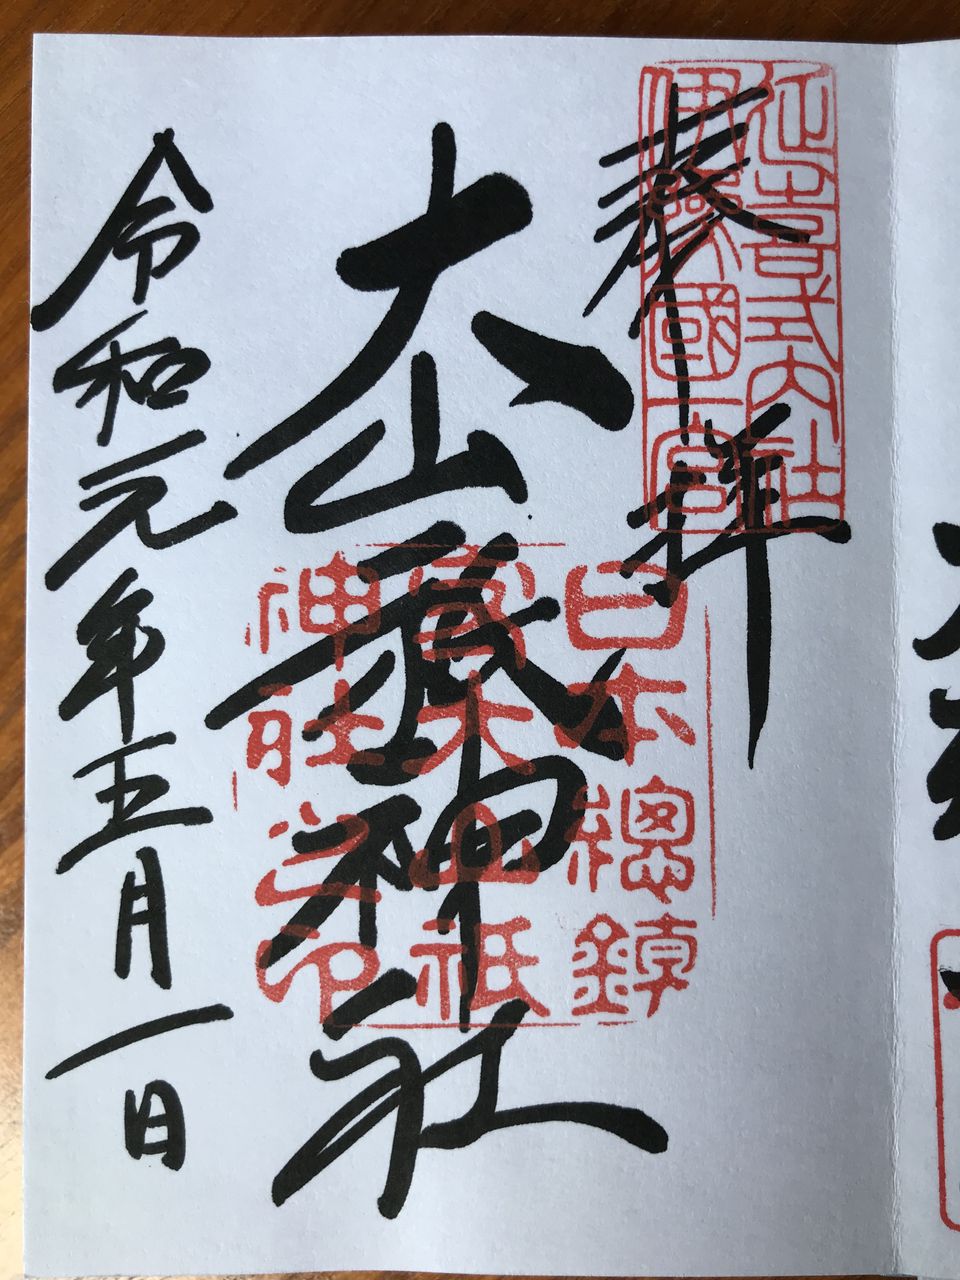 奉拝
延喜式内社
伊豫國一宮
大山祇神社
日本總鎮
守大山祇
神社之印
令和元年五月一日